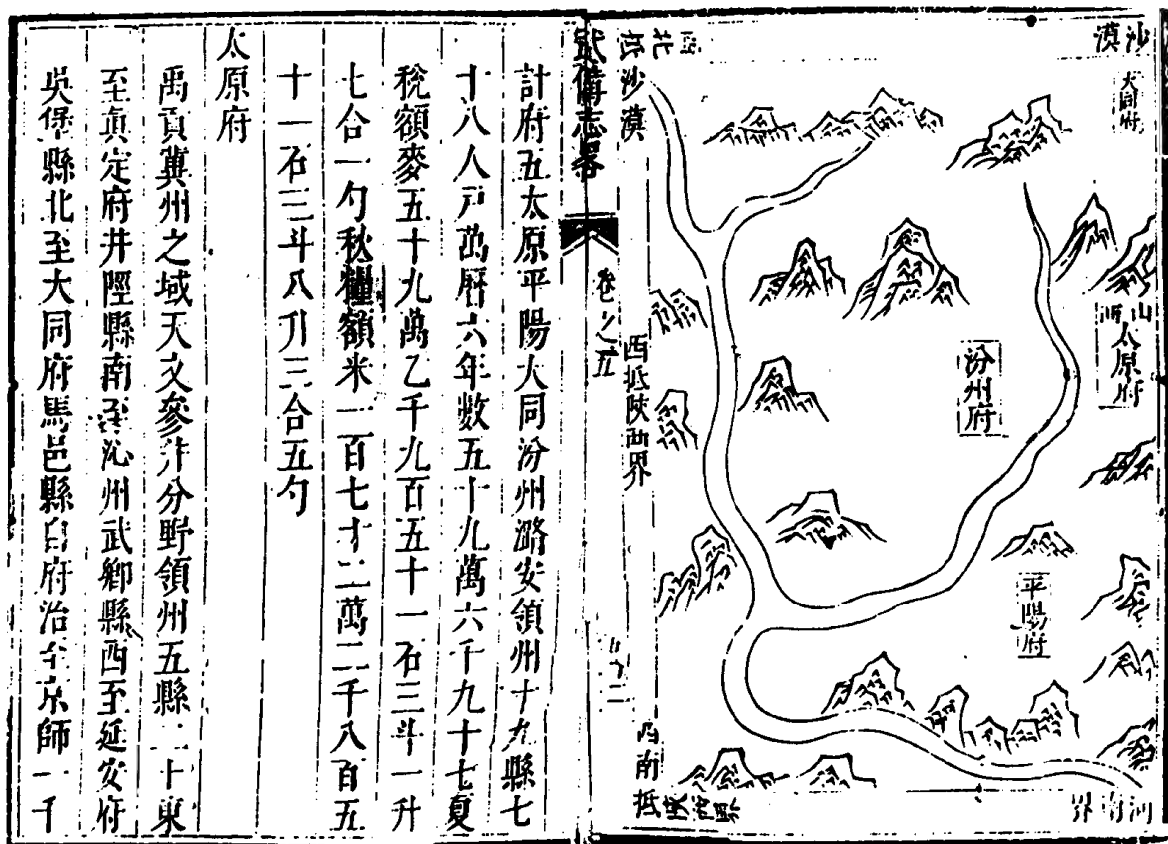 沙漠
大同府
山西
太原府
汾州府
平陽府
河南界
沙漠
西抵陝西界
西南抵
武備志畧
卷之五
計府五太原平陽大同汾州潞安領州十九縣七
十八人戸萬曆六年數五十九萬六千九十七夏
稅額麥五十九萬乙千九百五十一石三斗一升
七合一勺秋糧額米一百七十二萬二千八百五
十一石三斗八升三合五勺
太原府
禹貢冀州之域天文參井分野領州五縣二十東
至眞定府井陘縣南至沁州武鄉縣西至延安府
吳堡縣北至大同府馬邑縣自府治至京師一千